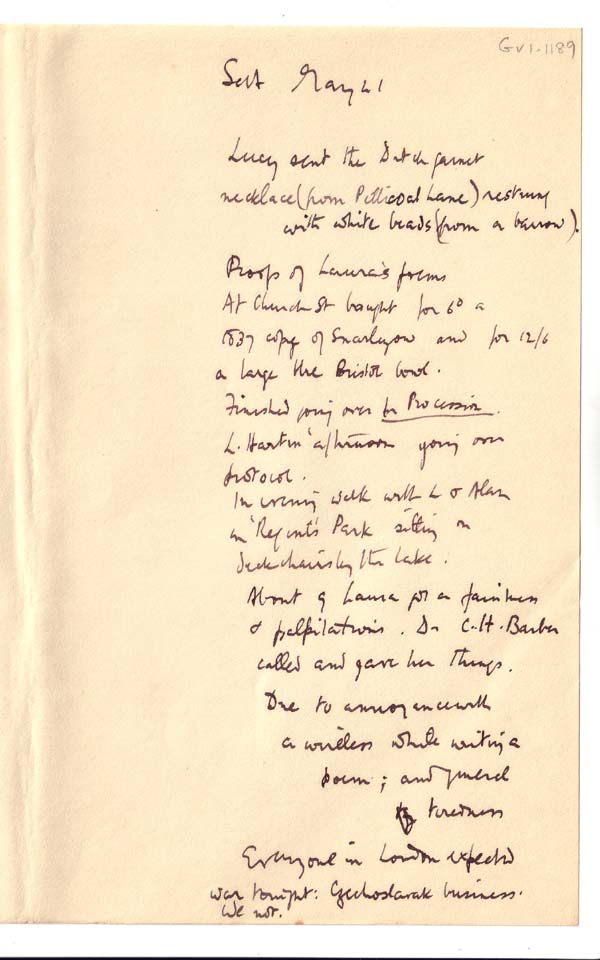 GV1.1189
Sat May 21
Lucy sent the Dutch garnet
necklace (from Petticoat Lane) restrung
with white beads (from a barrow).
Proofs of Laura's poems
At Church St bought for 6d a
1837 copy of Snarleyow and for 12/6
a large blue Bristol bowl.
Finished going over for Procession.
L. Hartin afternoon going over
protocol.
In evening walk with L & Alan
in Regent's Park sitting on
deckchairs by the Lake.
About 9 Laura got a faintness
& palpitations. Dr C.H. Barber
called and gave her things.
Due to annoyance with
a wireless while writing a
poem; and general
tiredness
Everyone in London expected
war tonight: Czechoslovak business.
We not.